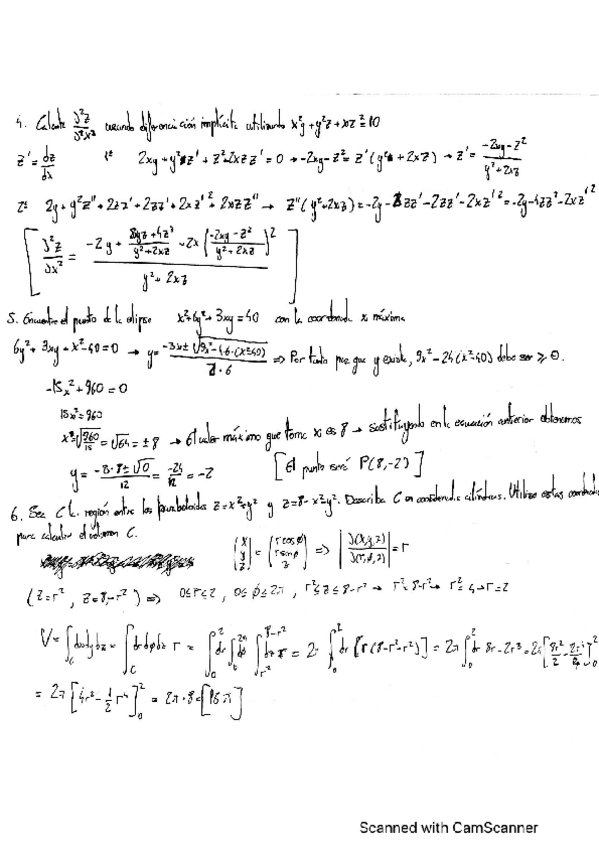 4. Calcule ∂²z/∂x² usando diferenciación implícita utilizando x²y+y²z+xz²=10
z'=dz/dx 1º 2xy+y²z'+z²+2xzz'=0 → -2xy-z²=z'(y²+2xz) → z'=(-2xy-z²)/(y²+2xz)
2º 2y+y²z''+2zz'+2zz'+2xz'²+2xzz'' → z''(y²+2xz)=-2y-2zz'-2zz'-2xz'²=-2y-4zz'-2xz'²
[∂²z/∂x² = (-2y+(8yz+4z³)/(y²+2xz)-2x((-2xy-z²)/(y²+2xz))²)/(y²+2xz)]
5. Encuentre el punto de la elipse x²+6y²+3xy=40 con la coordenada x máxima
6y²+3xy+x²-40=0 → y=(-3x±√(9x²-4·6·(x²-40)))/(2·6) ⇒ Por tanto para que y exista, 9x²-24(x²-40) debe ser ≥0.
-15x²+960=0
15x²=960
x=√(960/15)=√64=±8 → El valor máximo que toma x es 8 → sustituyendo en la ecuación anterior obtenemos
y=(-3·8±√0)/12=-24/12=-2 [El punto será P(8,-2)]
6. Sea C la región entre los paraboloides z=x²+y² y z=8-x²-y². Describa C en coordenadas cilíndricas. Utilice estas coordenadas
para calcular el volumen C.
(x y z)=(r cosφ r sinφ z) ⇒ |∂(x,y,z)/∂(r,φ,z)|=r
(z=r², z=8-r²) ⇒ 0≤r≤2, 0≤φ≤2π, r²≤z≤8-r² → r²=8-r² → r²=4 → r=2
V=∫_C dxdydz=∫_C drdφdz r=∫₀² dr ∫₀^2π dφ ∫_r²^8-r² dz r=2π ∫₀² dr [r(8-r²-r²)]=2π ∫₀² dr 8r-2r³=2π[8r²/2-2r⁴/4]₀²
=2π[4r²-1/2 r⁴]₀²=2π·8=[16π]
Scanned with CamScanner